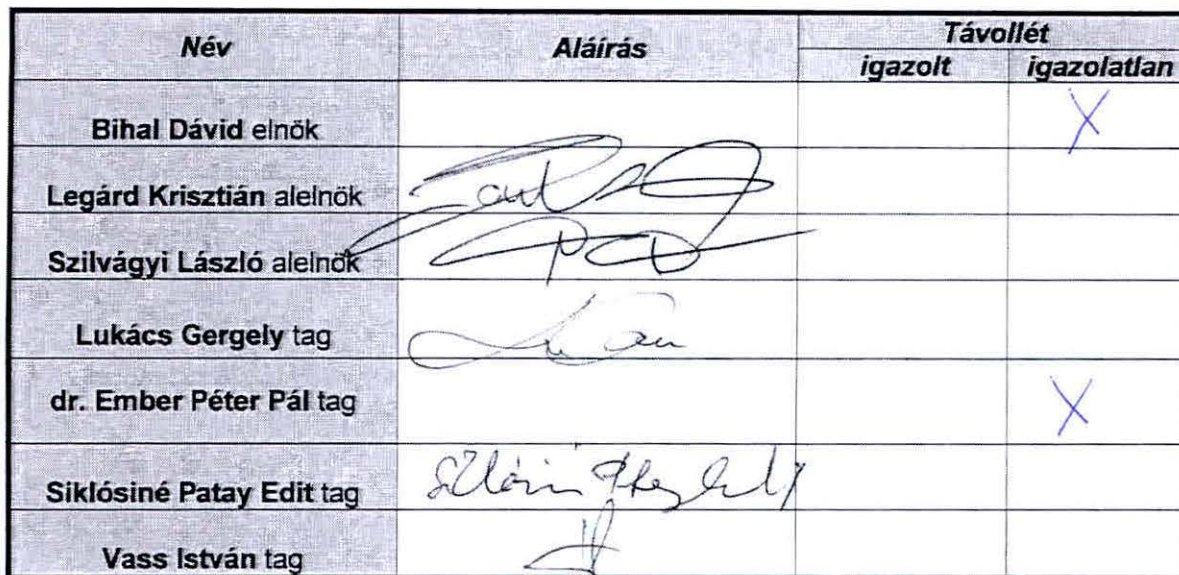 Név Aláírás Távollét
igazolt igazolatlan
Bihal Dávid elnök X
Legárd Krisztián alelnök
Szilvágyi László alelnök
Lukács Gergely tag
dr. Ember Péter Pál tag X
Siklósiné Patay Edit tag
Vass István tag